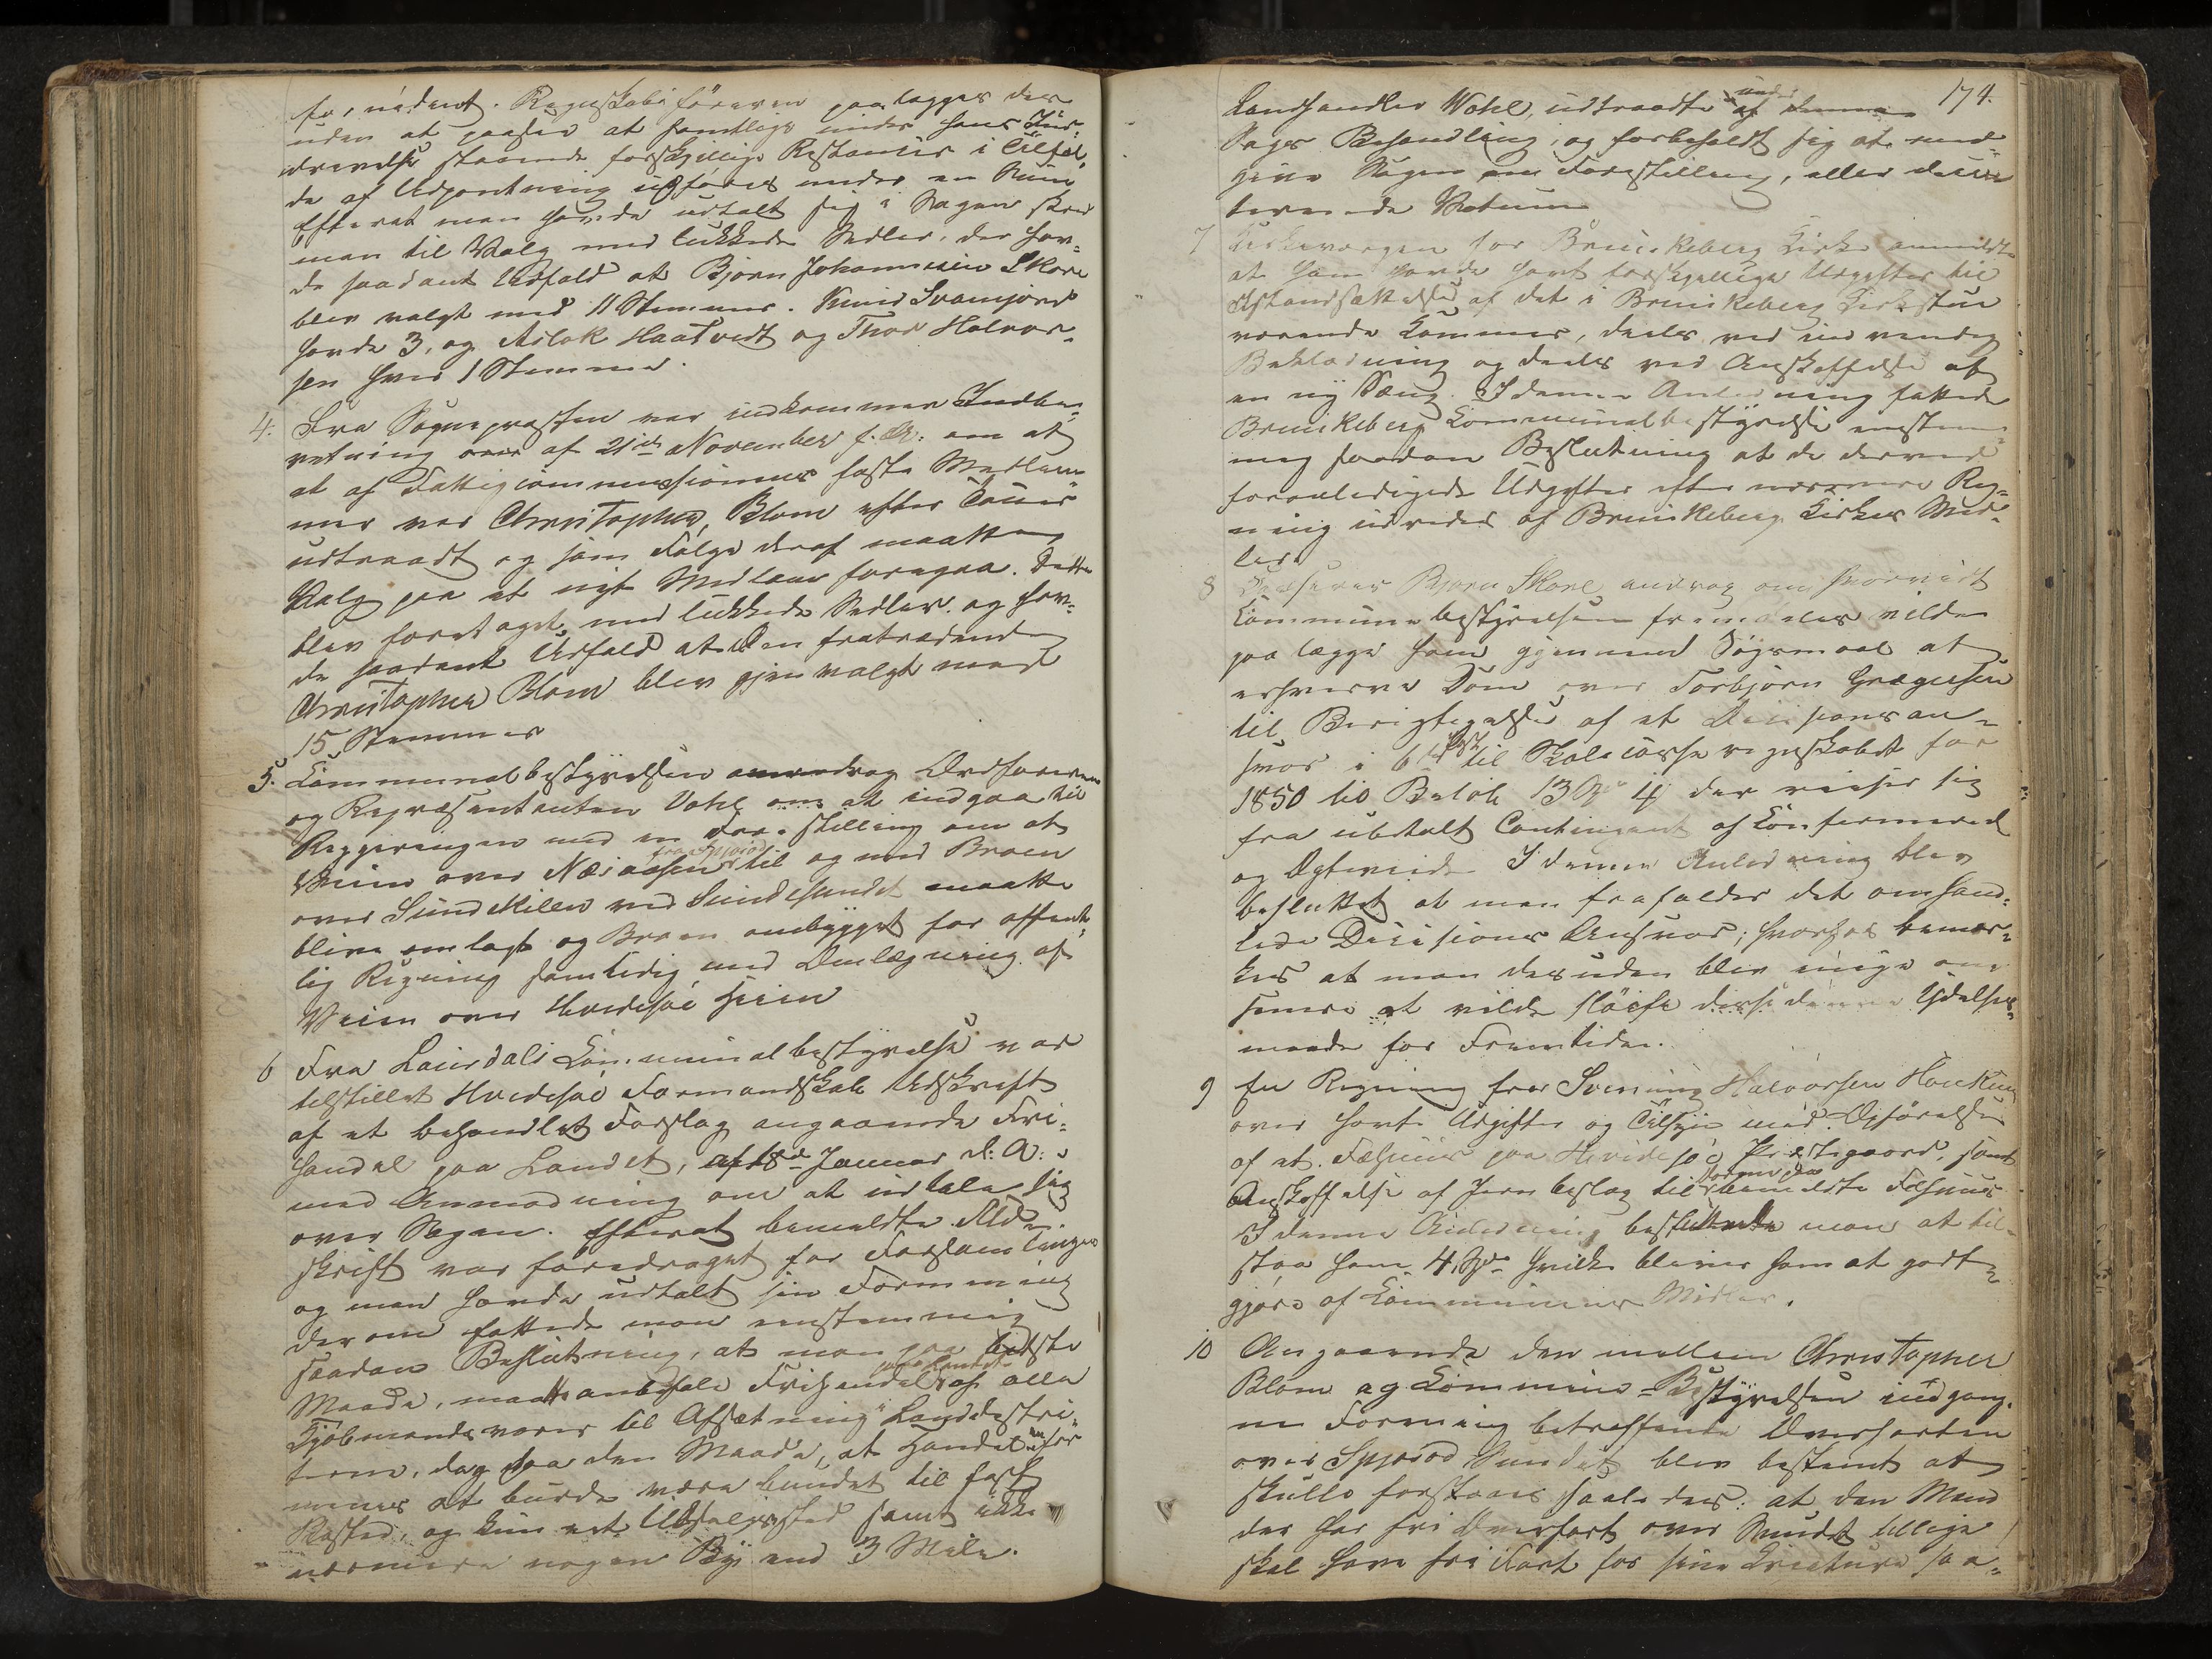 fornødent. Regnskabsføreren paalægges des
uden at paasee at samtlige under hans Ind¬
drevelse staaende forskjellige Restancer i Tilfæl¬
de af Udpantning udføres under en Sum
Efterat man havde udtalt sig i Sagen skred
man til Valg med lukkede Sedler, der hav¬
de saadant Udfald at Bjørn Johannesen Skore
blev valgt med 11 Stemmer. Knud Svamjord
havde 3, og Aslak Haatvedt og Thor Halvor¬
sen hver 1 Stemme.
4. Fra Sognepræsten var indkommen Indbe¬
retning af 21de November f. A. om at
at af Fattigcommissionens faste Medlem¬
mer var Christopher Blom efter Tour
udtraadt og som Følge deraf maatte
Valg paa et nyt Medlem foregaa. Dette
blev foretaget med lukkede Sedler og hav¬
de saadant Udfald at den fratrædende
Christopher Blom blev gjenvalgt med
15 Stemmer
5. Communalbestyrelsen androg Ordføreren
og Repræsentanten Vohl om at indgaa til
Regjeringen med en Forestilling om at
fra Spjosod
Veien over Næsaasen til og med Broen
over Sundkilen ved Sundesundet maatte
blive omlagt og Broen ombygget for offent¬
lig Regning samtidig med Omlægning af
Veien over Hvidesøe Heien
6 Fra Laurdals Communalbestyrelse var
tilstillet Hvidesøe Formandskab Udskrift
af et behandlet Forslag angaaende Fri¬
handel paa Landet, af 18de Januar d. A.
med Anmodning om at udtale sig
over Sagen. Efterat bemeldte Ud¬
skrift var foredraget for Forsamlingen
og man havde udtalt sin Formening
derom fattede man eenstemmig
saadan Beslutning, at man paa bedste
paa Landet
Maade, maatte anbefale Frihandel af alle
Kjøbmandsvarer til Afsætning i Landdistri¬
terne, dog paa den Maade, at Handelen for
menes at burde være bundet til fast
Rosted, og kun et Udsalgssted samt ikke
nærmere nogen By end 3 Mile.
174.
under
Landhandler Wohl, udtraadte af denne
Sags Behandling, og forbeholdt sig at med¬
give Sagen en Forestilling, eller dissen
terende Votum
7 Kirkeværgen for Brunkeberg Kirke anmeldte
at han havde havt forskjellige Udgifter til
Istandsættelse af det i Brunkeberg Kirkestue
værende Kammer, deels ved indvendig
Beklædning og deels ved Anskaffelse af
en ny Seng. I denne Anledning fattede
Brunkeberg Communalbestyrelse eenstem¬
mig saadan Beslutning at de derved
foranledigede Udgifter efter nærmere Reg¬
ning udredes af Brunkeberg Kirkes Mid¬
ler.
8 Bjørn Skore androg om hvorvidt
Communebestyrelsen fremdeles vilde
paalægge ham gjennem Søgsmaal at
erhverve Dom over Torbjørn Grægersen
til Berigtigelse af et Decisionsan¬
svar i 6te Post til Skolecasseregnskabet for
1850 til Beløb 13 Spd 4 der reiser sig
fra ubetalt Contingent af Confirmered
og Ægteviede. I denne Anledning blev
besluttet at man frafalder det omhand¬
lede Decisions Ansvar; hvorhos bemær¬
kes at man desuden blev enige om
herefter at vilde sløife denne Ydelses¬
maade for Fremtiden.
9 En Regning fra Svenning Halvorsen Haukum
over havte Udgifter og Tilsyn med Opførelsen
af et Fæhuus paa Hvidesøe Præstegaard, samt
Anskaffelse af Jernbeslag til bemeldte Fæhuus
I denne Anledning besluttede man at til¬
staa ham 4 Spd hvilke bliver ham at godt¬
gjøre af Communens Midler.
10 Angaaende den mellem Christopher
Blom og Commune-Bestyrelsen indgang¬
ne Forening betræffende Overfarten
over Spjosod Sundet blev bestemt at
skulle forstaaes saaledes: at den Mand
der har fri Overfart over Sundet tillige
skal have fri Fart for sine Creature saa¬